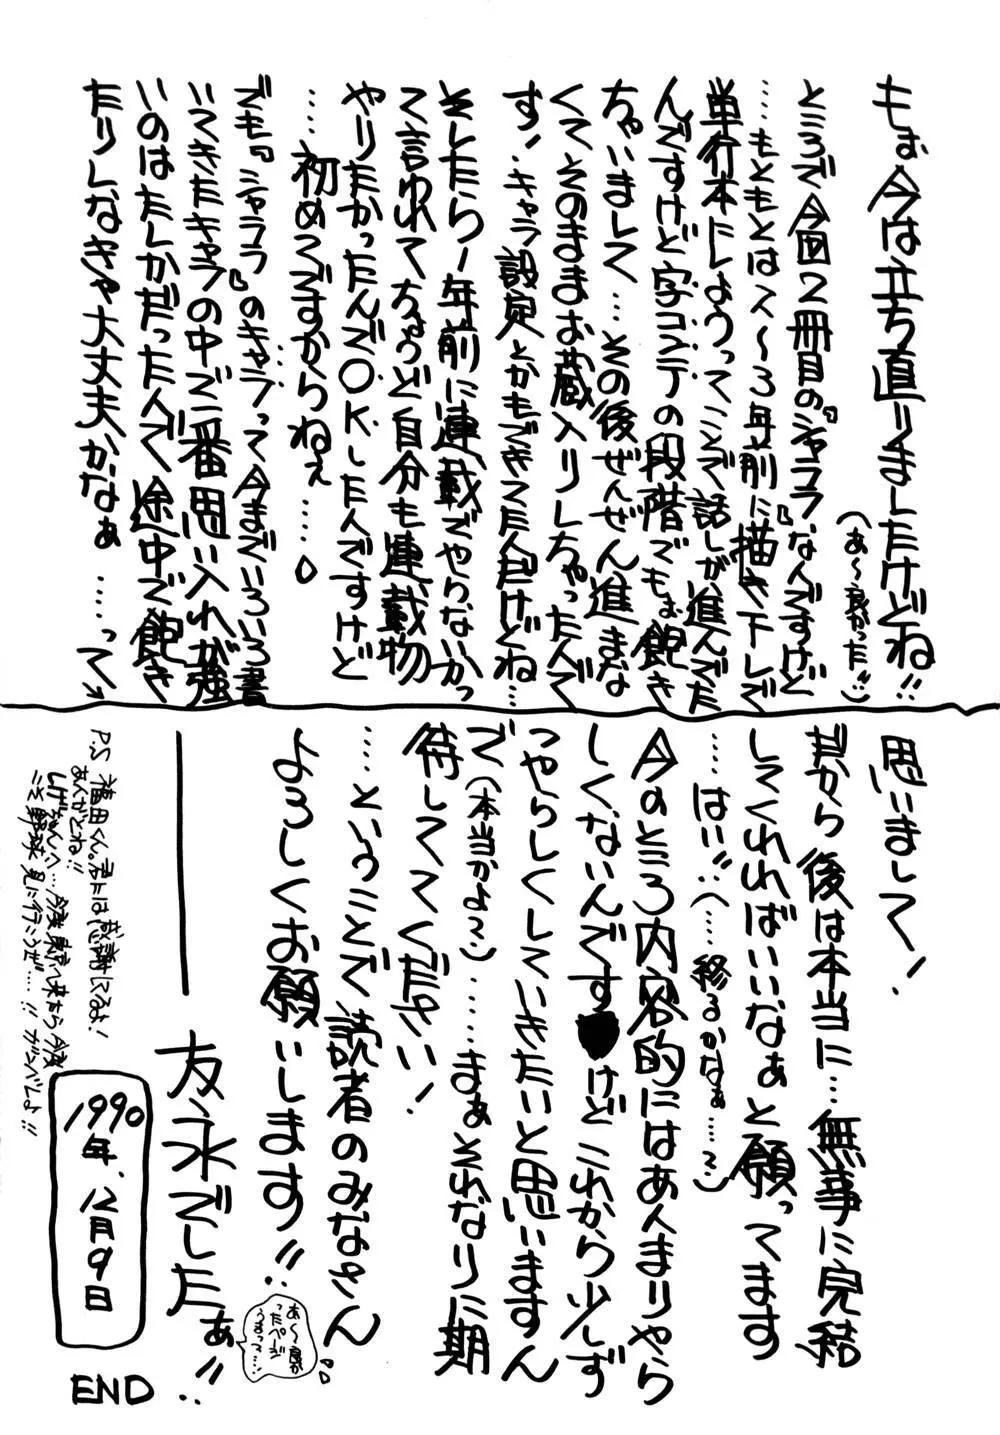 もぉ今は立ち直りましたけどね!!
(あ〜良かった…)
ところで今回2冊目の『シャララ』なんですけど
……もともとは2〜3年前に描き下しで
単行本にしようってことで話しが進んでた
んですけど字コンテの段階でもぉ飽き
ちゃいまして…その後ぜんぜん進まな
くてそのままお蔵入りしちゃったんで
す!キャラ設定とかもできてたんだけどね…
そしたら1年前に連載でやらないかっ
て言われてちょうど自分も連載物
やりたかったんでOKしたんですけど
……初めてですからねぇ……
でも『シャララ』のキャラって今までいろいろ書
いてきたキャラの中で一番思い入れが強
いのはたしかだったんで途中で飽き
たりしなきゃ大丈夫かなぁ……って、
思いまして!
だから後は本当に…無事に完結
してくればいいなぁと願ってます
……はい!!(……移るかなぁ……)
今のところ内容的にはあんまりやら
しくないんです♥けどこれから少しず
つやらしくしていきたいと思いますん
で(本当かよ〜)……まぁそれなりに期
待しててください!
……ということで読者のみなさん
よろしくお願いします!!
友永でしたぁ!!
あ〜良か
ったページ
うまって…!
P.S 福田くん。君には感謝してるよ!
あんがとね!!
しげちゃんへ…今度東京へ来たら今度
こそ野球見に行こうぜ……!! ガンバレよ!!
1990年、12月9日
END